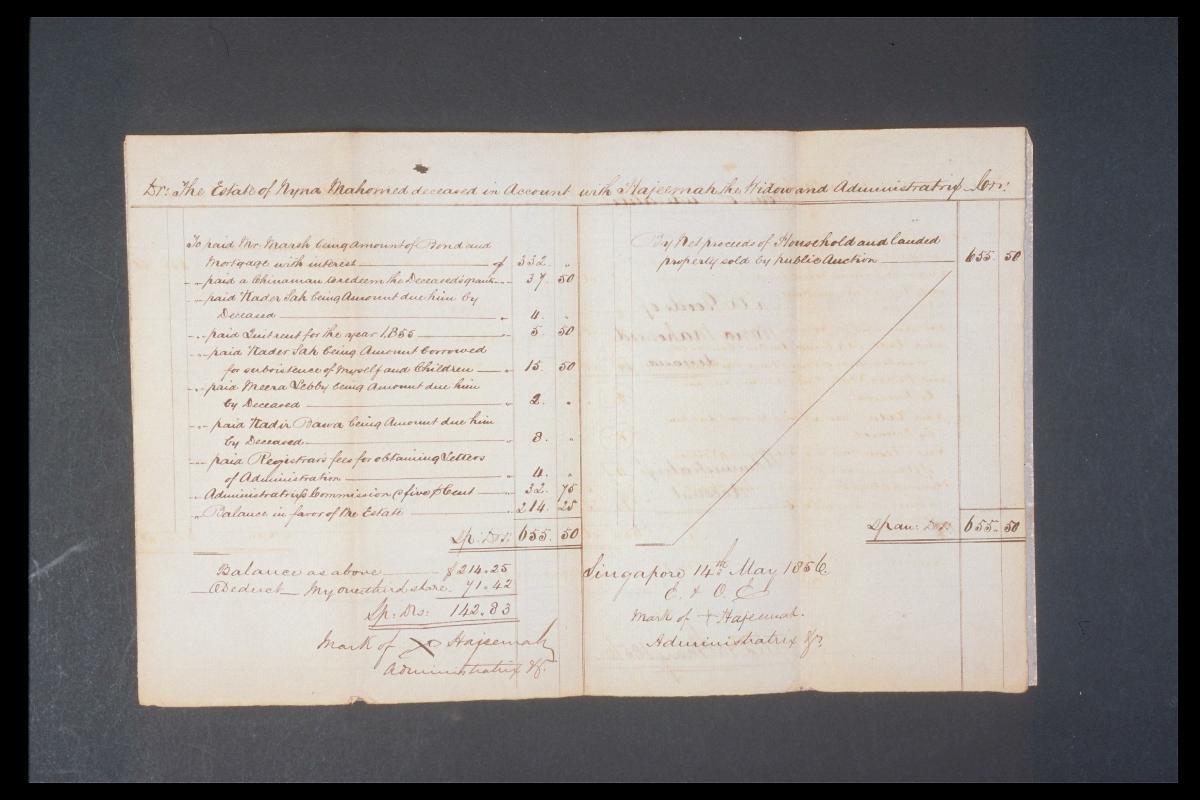 Dr: The Estate of Nyna Mahomed deceased in Account with Hajeemah the Widow and Administratrix Cr:
To paid Mr. Marsh being Amount of Bond and
Mortgage with interest $ 332. "
" paid a Chinaman to redeem the Deceased's grant " 37. 50
" paid Kader Sah being Amount due him by
Deceased " 4. "
" paid Quit rent for the year 1855 " 5. 50
" paid Kader Sah being Amount borrowed
for subsistence of Myself and Children " 15. 50
" paid Meera Lebby being Amount due him
by Deceased " 2. "
" paid Kadir Bawa being Amount due him
by Deceased " 3. "
" paid Registrar's fees for obtaining Letters
of Administration " 4. "
" Administratrix's Commission @ five p Cent " 32. 75
" Balance in favor of the Estate " 214. 25
Sp: Drs: 655. 50
Balance as above $ 214.25
Deduct My one third share 71.42
Sp: Drs: 142.83
Mark of X Hajeemah
Administratrix &c.
By Net proceeds of Household and landed
property sold by public Auction 655. 50
Span: Drs: 655. 50
Singapore 14th May 1856.
E. & O. E
Mark of + Hajeemah.
Administratrix &c.